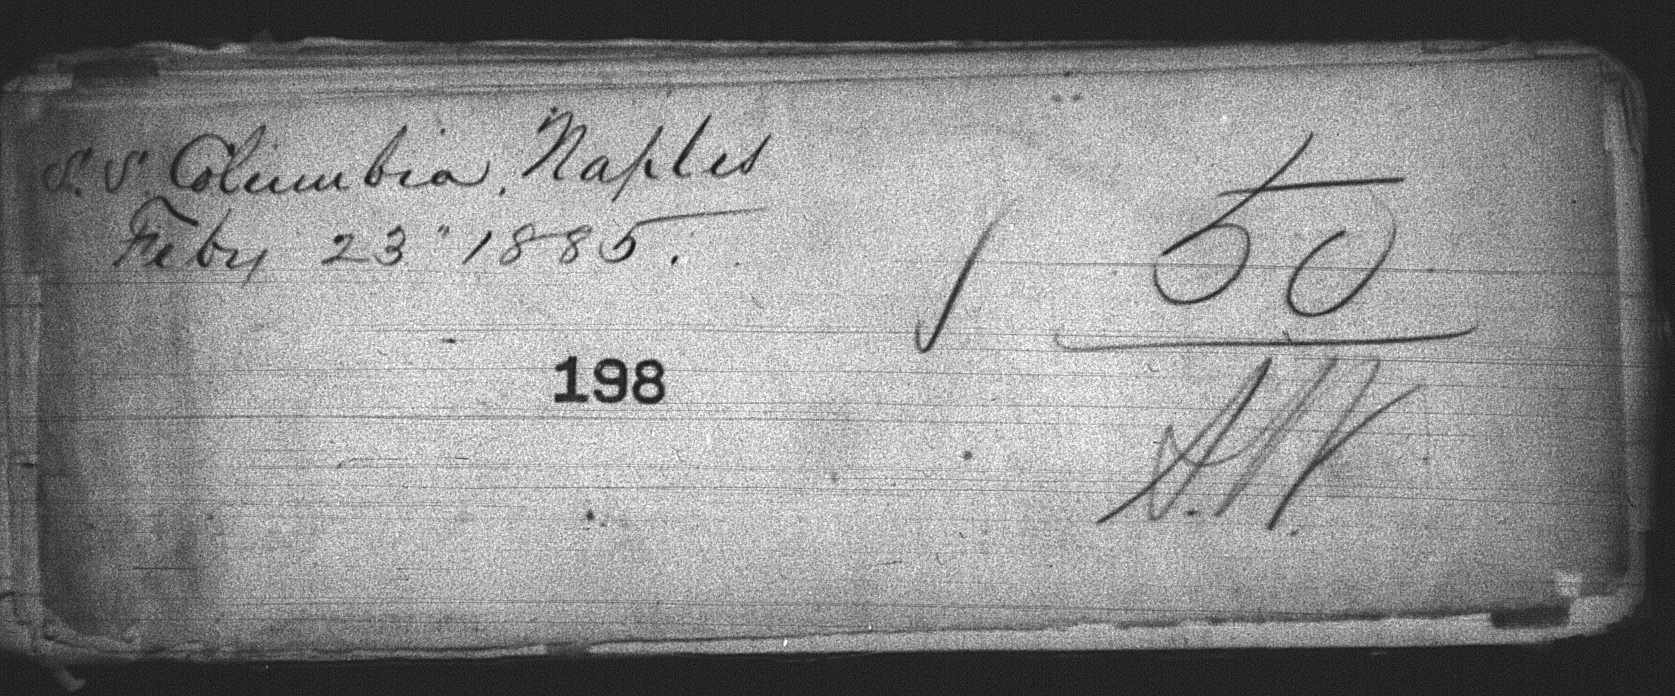 S. S. Columbia, Naples
Feby 23" 1885.
50
198